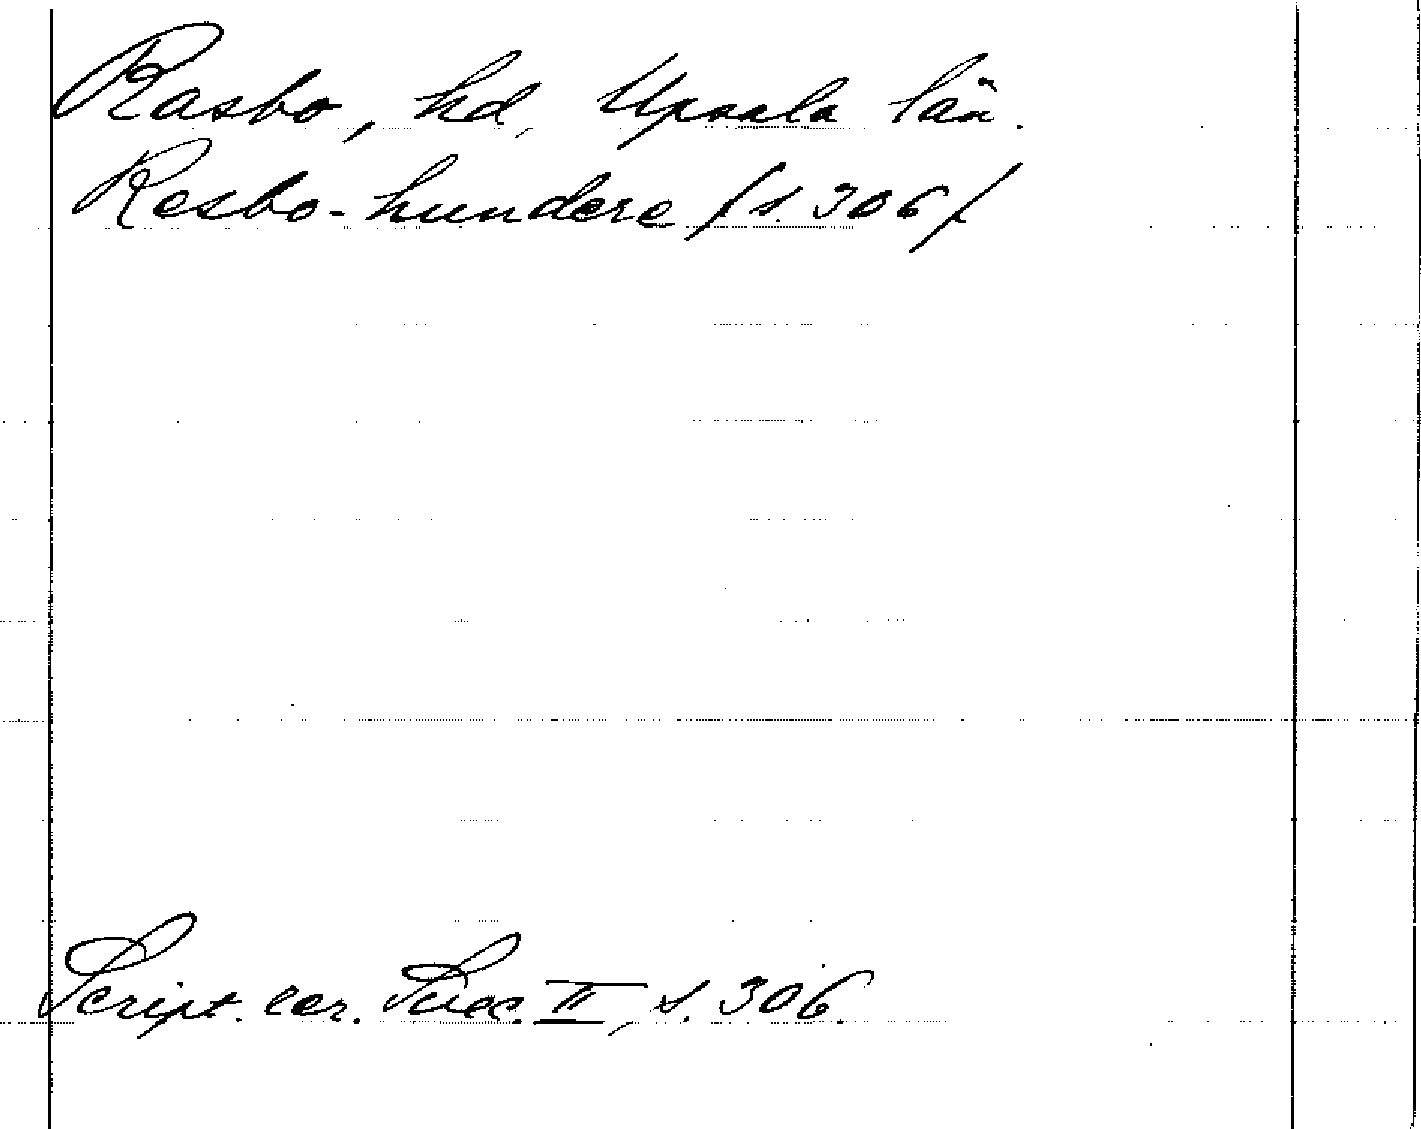 Rasbo, hd, Upsala län.
Resbo-hundere /s. 306/
Script. rer. Suec. II, s. 306.